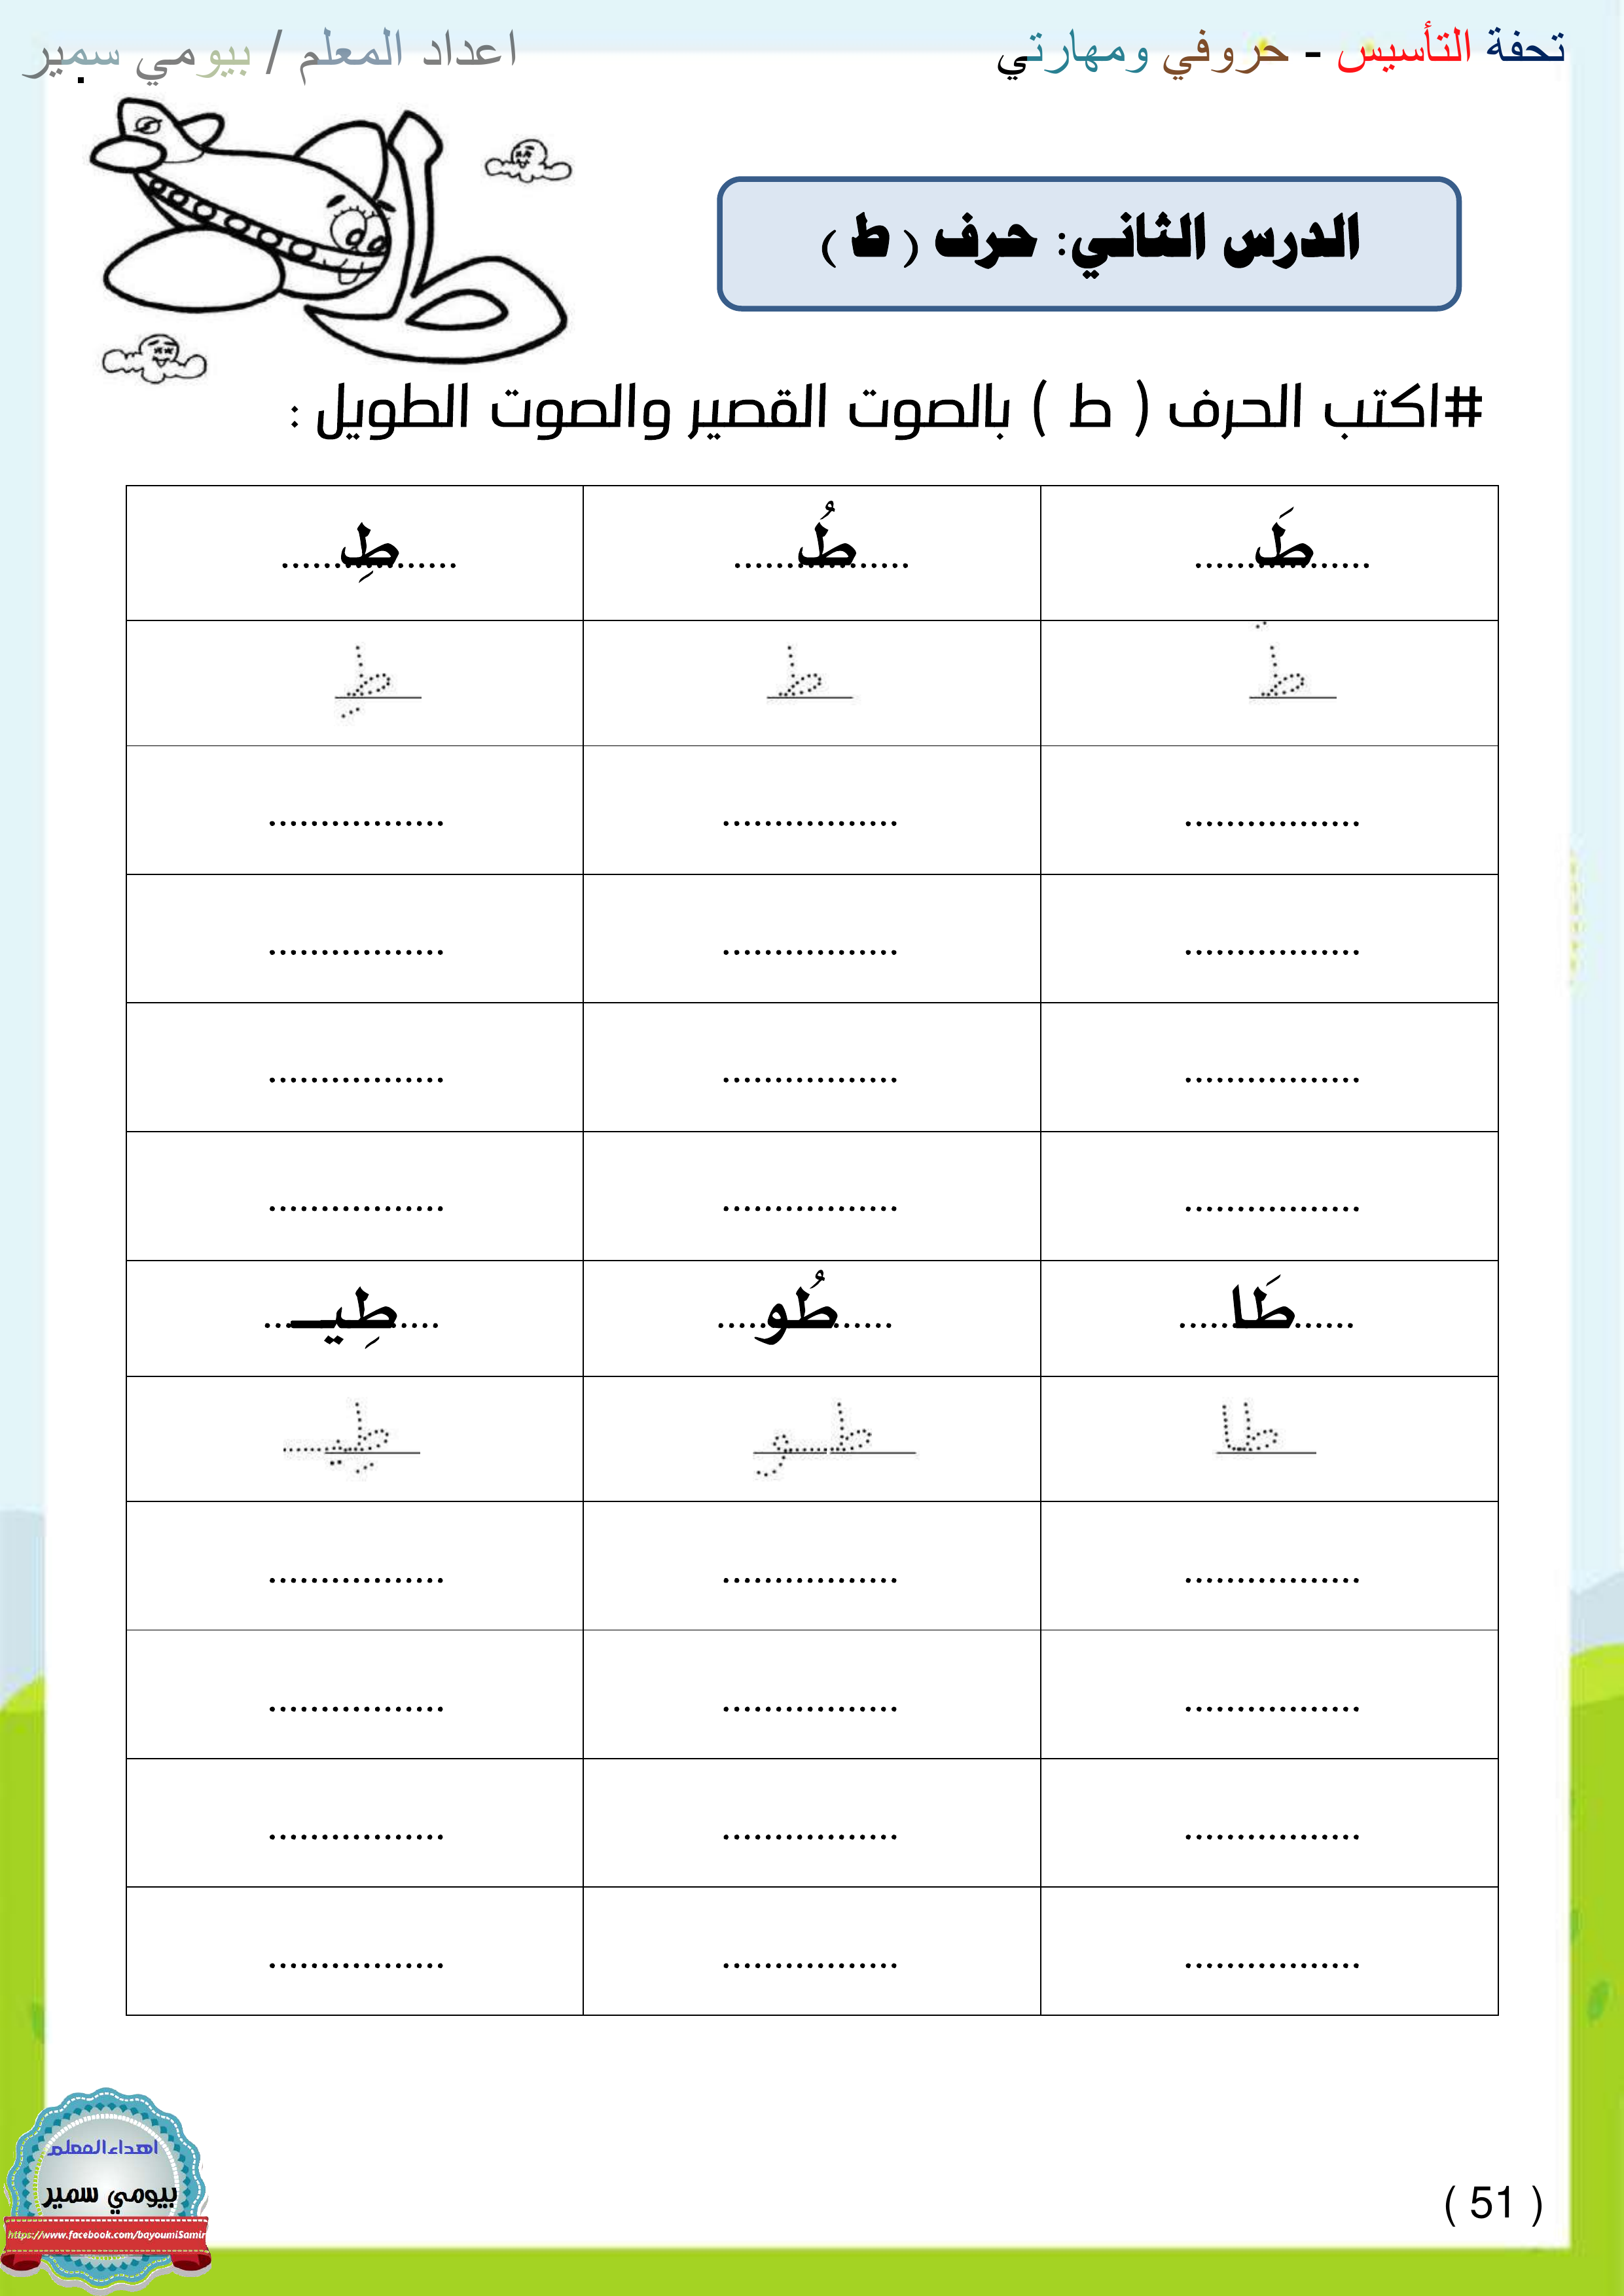 تحفة التأسيس - حروفي ومهارتي
اعداد المعلم / بيومي سمير
الدرس الثاني: حرف ( ط )
#اكتب الحرف ( ط ) بالصوت القصير والصوت الطويل :
طَ طُ طِ
ط ط طِ
................. ................. .................
................. ................. .................
................. ................. .................
................. ................. .................
طَا طُو طِيـ
طا طو طِيـ
................. ................. .................
................. ................. .................
................. ................. .................
................. ................. .................
اهداء المعلم
بيومي سمير
https://www.facebook.com/bayoumiSamir
( 51 )